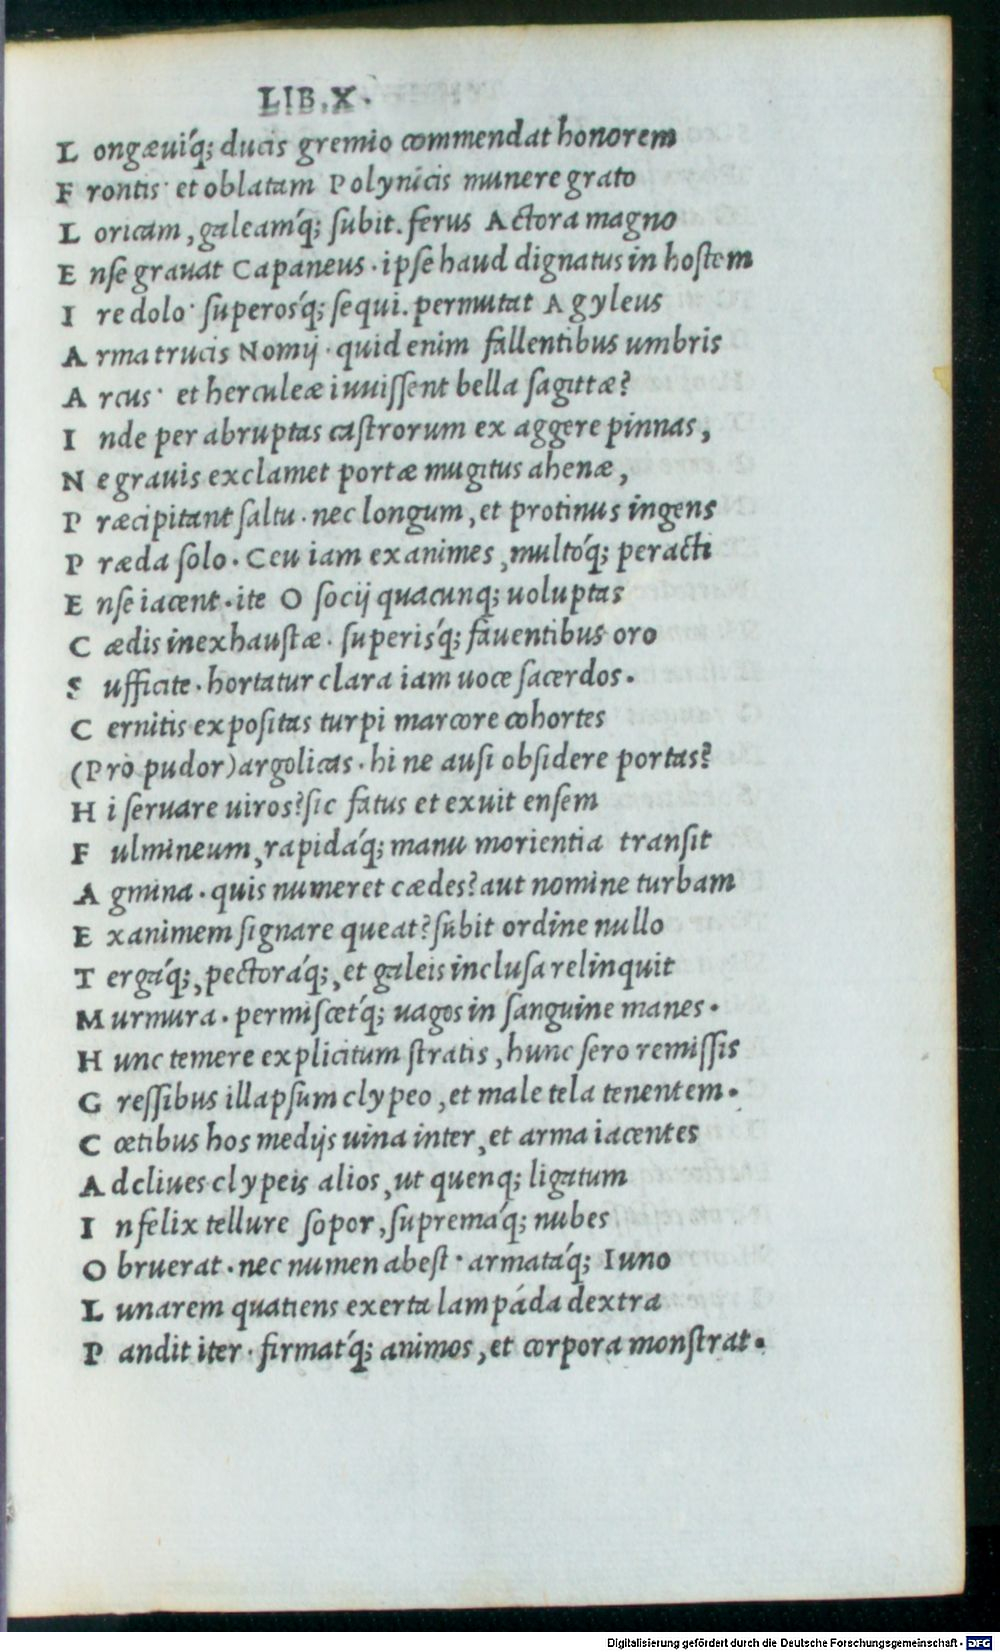 LIB.X.
L ongæui'q; ducis gremio commendat honorem
F rontis· et oblatam Polynicis munere grato
L oricam, galeam'q; subit. ferus Actora magno
E nse grauat Capaneus·ipse haud dignatus in hostem
I re dolo· superos'q; sequi. permutat Agyleus
A rma trucis Nomij·quid enim fallentibus umbris
A rcus· et herculeæ iuuissent bella sagittæ?
I nde per abruptas castrorum ex aggere pinnas,
N e grauis exclamet portæ mugitus ahenæ,
P ræcipitant saltu·nec longum, et protinus ingens
P ræda solo·Ceu iam exanimes, multo'q; peracti
E nse iacent·ite O socij quacunq; uoluptas
C ædis inexhaustæ·superis'q; fauentibus oro
S ufficite·hortatur clara iam uoce sacerdos.
C ernitis expositas turpi marcore cohortes
(Prò pudor)argolicas·hi ne ausi obsidere portas?
H i seruare uiros?sic fatus et exuit ensem
F ulmineum, rapidá'q; manu morientia transit
A gmina·quis numeret cædes?aut nomine turbam
E xanimem signare queat?subit ordine nullo
T ergá'q;, pectorá'q;, et galeis inclusa relinquit
M urmura·permiscet'q; uagos in sanguine manes·
H unc temere explicitum stratis, hunc sero remissis
G ressibus illapsum clypeo, et male tela tenentem.
C œtibus hos medijs uina inter, et arma iacentes
A dcliues clypeis alios, ut quenq; ligatum
I nfelix tellure sopor, supremá'q; nubes
O bruerat·nec numen abest·armatá'q; Iuno
L unarem quatiens exerta lampáda dextra
P andit iter·firmat'q; animos, et corpora monstrat.
Digitalisierung gefördert durch die Deutsche Forschungsgemeinschaft - DFG